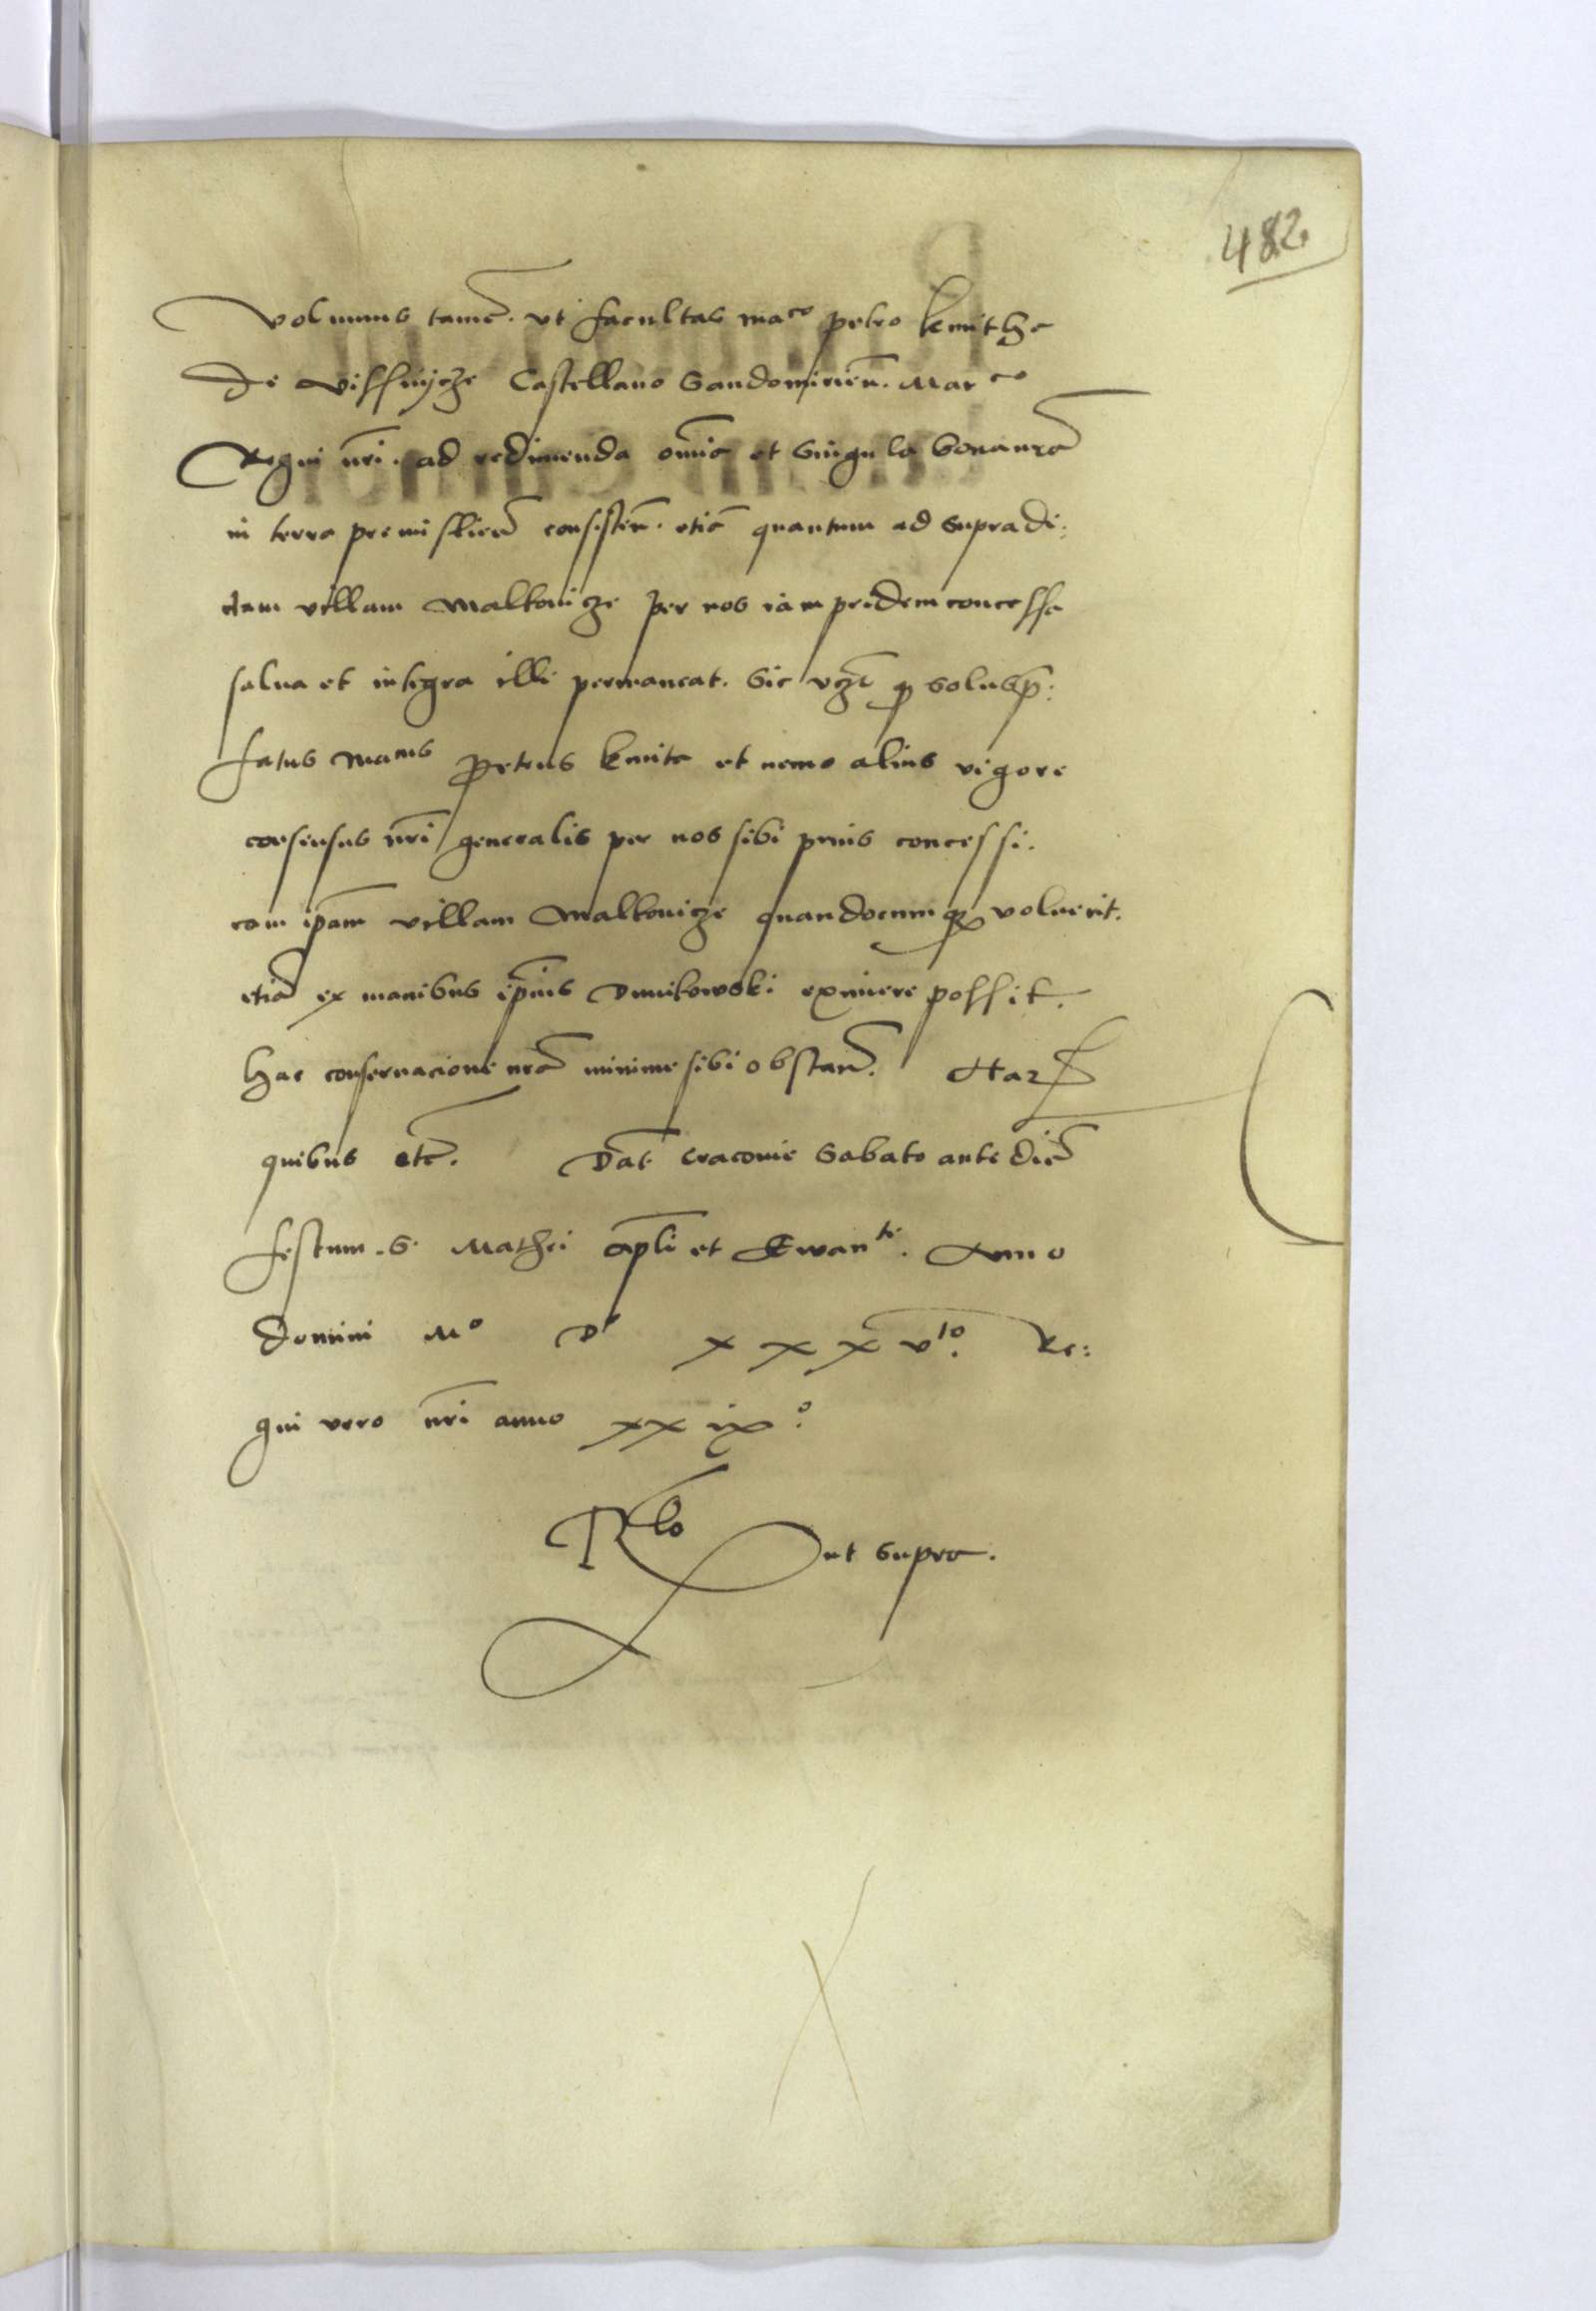 482.
Volumus tamē. ut facultas ma^co petro kmithe
de vissnycze Castellano Sandomirieñ. Mar^co
Regni nr̄i. ad redimenda om̄ia et singula bona nr̄a
in terra premislieñ consisteñ. etiā quantum ad supradi:
ctam villam Malkovicze per nos iam pridem concessa
salva et integra illi permaneat. Sic vcz̄t q̄ solus p̄:
fatus ma^cus Petrus kmita et nemo alius vigore
consensus nr̄i generalis per nos sibi prius concessi.
eam ip̄am villam Malkovicze quandocumqz voluerit.
etiā ex manibus ip̄ius Dmitowski eximere possit.
hac conservacione nr̄a minime sibi obstañ. Harȝ
quibus etc̄. Dat̄ Cracovie Sabato ante diē
festum. S. Mathei apl̄i et Ewan^te. Anno
domini M^o D^o xxxv^to. Re:
gni vero nr̄i anno xxix^o.
R^lo ut supra.